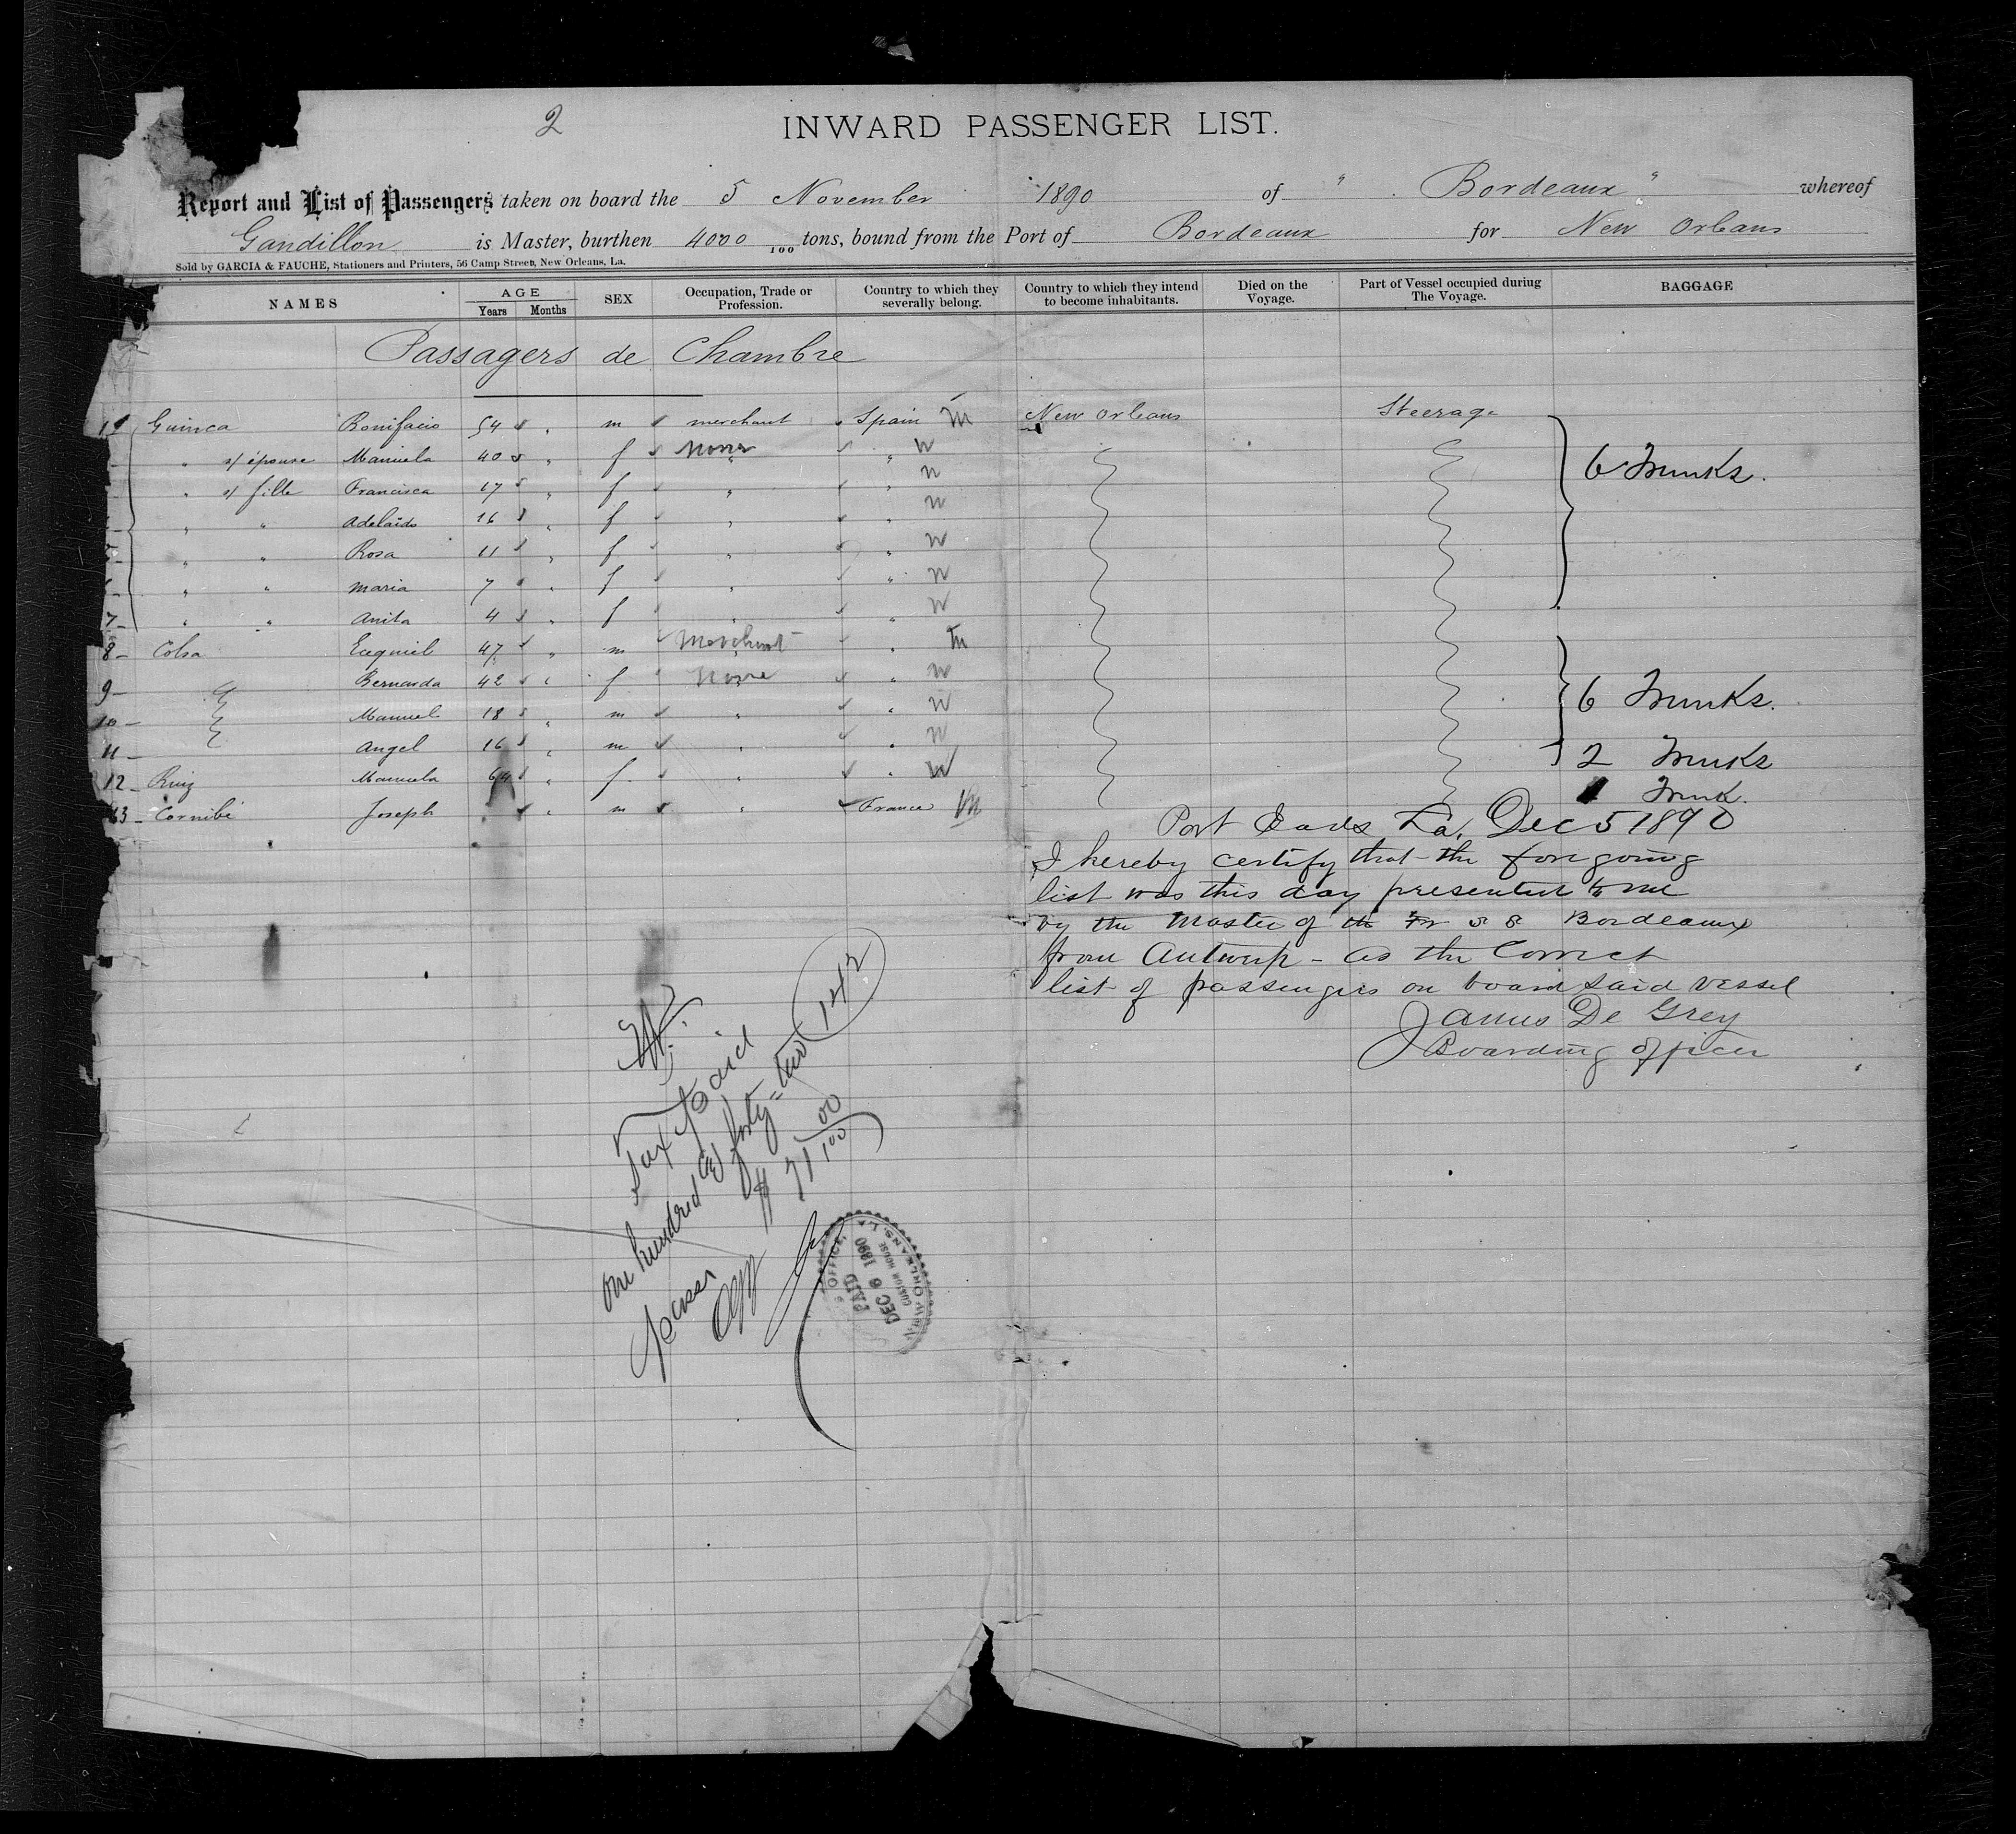 2
INWARD PASSENGER LIST.
Report and List of Passengers taken on board the 5 November 1890 of " Bordeaux " whereof
Gandillon is Master, burthen 4000 /100 tons, bound from the Port of Bordeaux for New Orleans
Sold by GARCIA & FAUCHE, Stationers and Printers, 56 Camp Street, New Orleans, La.
NAMES AGE Years Months SEX Occupation, Trade or Profession. Country to which they severally belong. Country to which they intend to become inhabitants. Died on the Voyage. Part of Vessel occupied during The Voyage. BAGGAGE
Passagers de Chambre
1 Guinea Bonifacio 54 " m merchant Spain m New Orleans Steerage
" s/ épouse Manuela 40 " f None " W 6 Trunks.
" s/ fille Francisca 17 " f " " W
" " Adelaide 16 " f " " W
" " Rosa 11 " f " " W
" " Maria 7 " f " " W
7 " " Anita 4 " f " " W
8 - Colsa Ezequiel 47 " m Merchant " m
9 - Bernarda 42 " f None " W 6 Trunks.
10 - Manuel 18 " m " " W
11 - Angel 16 " m " " W 2 Trunks
12 - Ruiz Manuela 64 " f " " W 1 Trunk.
13 - Cornibé Joseph " m " France m
Port Eads La. Dec 5 1890
I hereby certify that the foregoing
list was this day presented to me
by the Master of the Fr S S Bordeaux
from Antwerp - as the Correct
list of passengers on board said vessel
James De Grey
Boarding officer
Tax Paid
One hundred and forty-two (142)
$71.00
00
OFFICE,
PAID
DEC 6 1890
CUSTOM HOUSE
NEW ORLEANS, LA